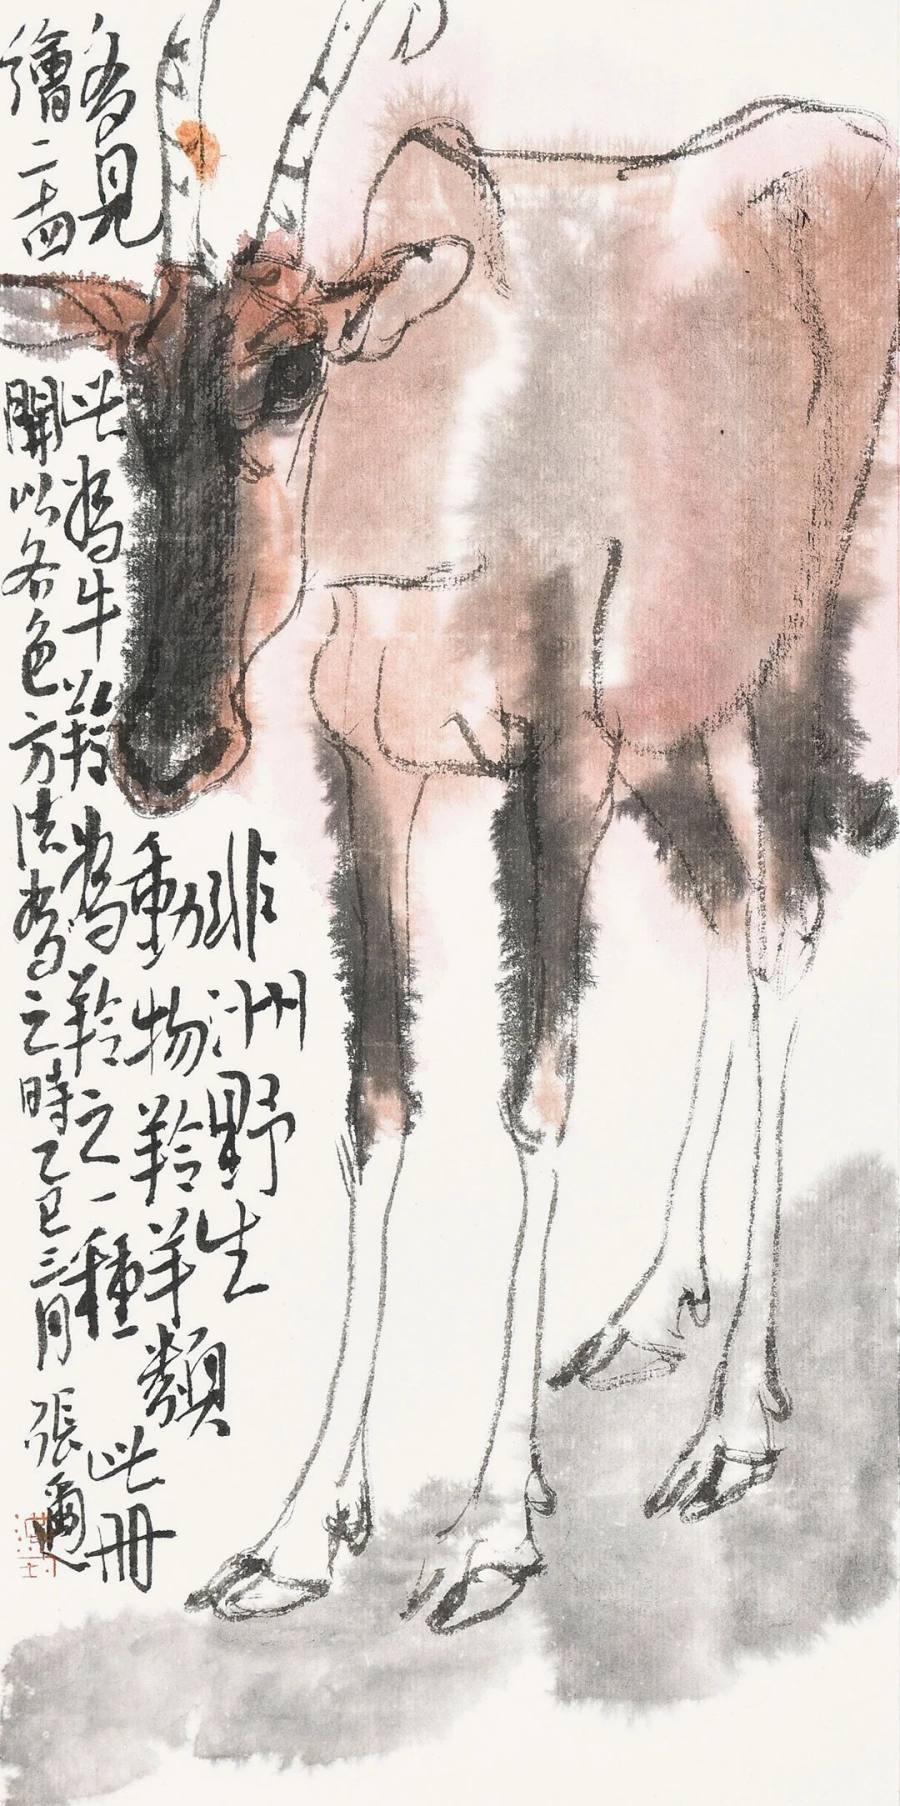 非洲野生
動物羚羊類
多見
此為牛 為羚之一種
此冊
繪二十四
開以各色方法為之時乙巳三月
張邇